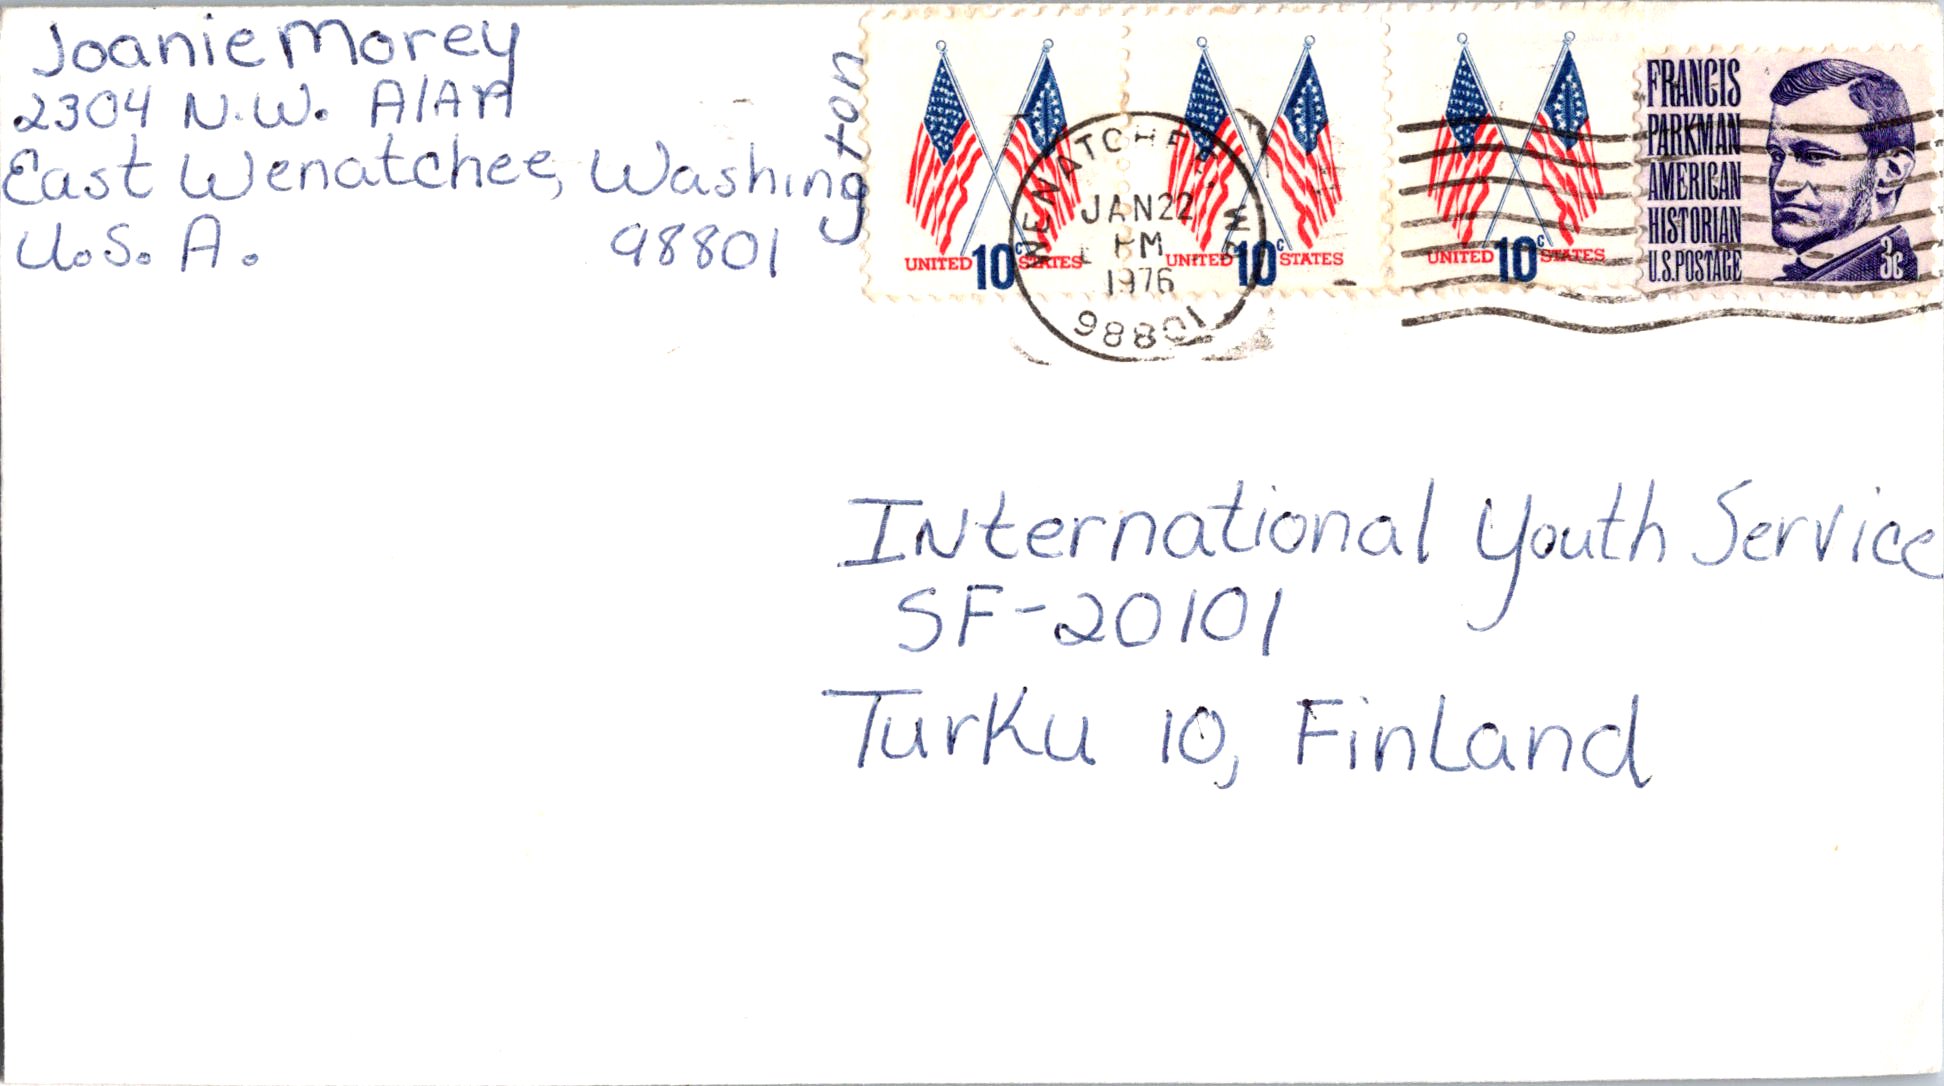 Joanie Morey
2304 N.W. AlAn
East Wenatchee, Washington
U.S.A. 98801
UNITED 10c STATES
UNITED 10c STATES
UNITED 10c STATES
FRANCIS
PARKMAN
AMERICAN
HISTORIAN
U.S. POSTAGE
3c
WENATCHEE,
JAN 22
PM
1976
98801
International Youth Service
SF-20101
Turku 10, Finland